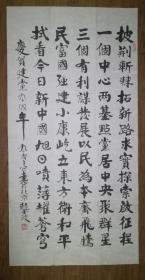 披荆斩棘拓新路求实探索启征程
一个中心两基点党居中央聚群星
三个有利谋发展以民为本奋飞腾
民富国强建小康屹立东方衡和平
拭看今日新中国旭日喷薄耀苍穹
庆贺建党九〇年